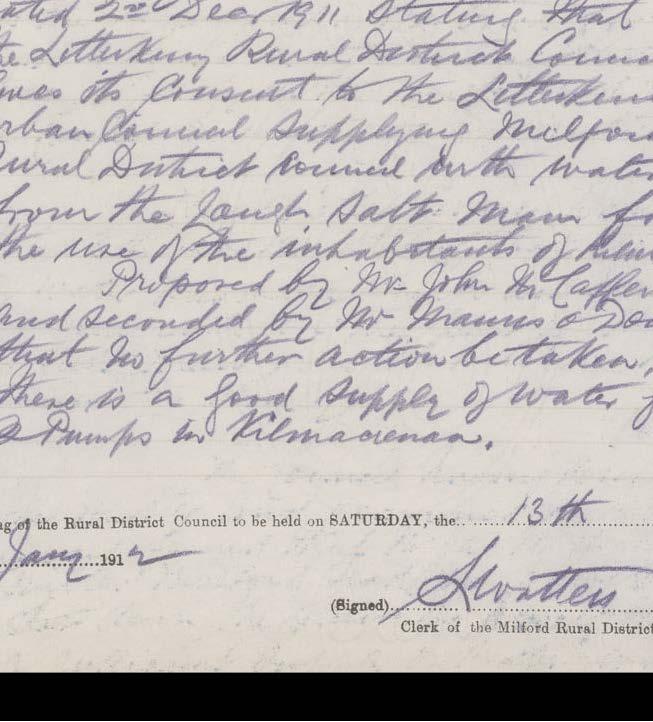 ated 2nd Decr 1911 Stating that
he Letterkenny Rural District Counc
ives its Consent to the Letterkenn
rban Council Supplying Milfor
ural District Council with wate
from the Lough Salt Main fo
the use of the inhabitants of
Proposed by Mr John McCaffer
and seconded by Mr Manus o Do
that no further action be taken,
there is a good supply of water f
Pumps in Kilmacrenan.
ng of the Rural District Council to be held on SATURDAY, the 13th
Jany 1912
(Signed) Watters
Clerk of the Milford Rural District